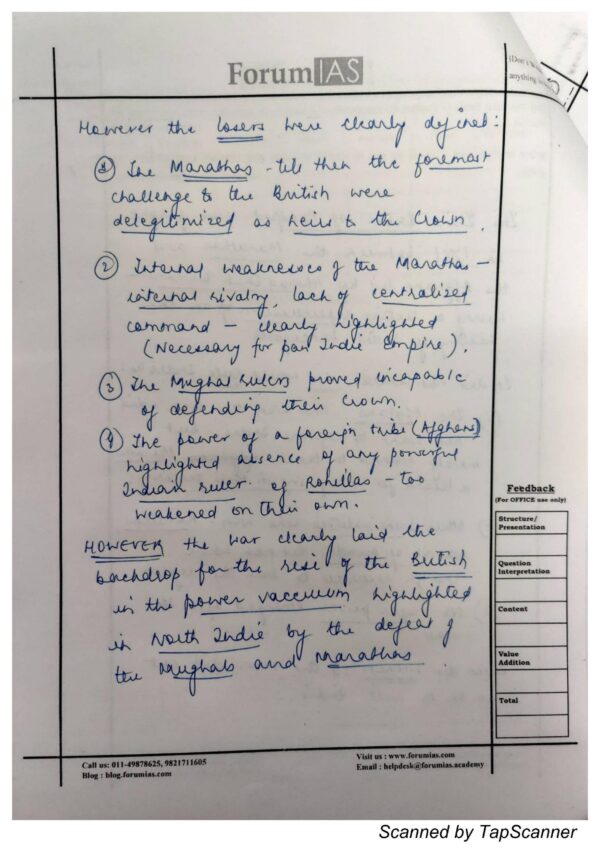 ForumIAS
(Don't
anything
However the losers were clearly defined:
① The Marathas - till then the foremost
challenge to the British were
delegitimized as heirs to the Crown.
② Internal weaknesses of the Marathas -
internal rivalry, lack of centralized
command - clearly highlighted
(Necessary for pan India Empire).
③ The Mughal rulers proved incapable
of defending their Crown.
④ The power of a foreign tribe (Afghans)
highlighted absence of any powerful
Indian ruler. of Rohillas - too
weakened on their own.
HOWEVER the war clearly laid the
backdrop for the rise of the British
in the power vaccuum highlighted
in North India by the defeat of
the Mughals and Marathas
Feedback
(For OFFICE use only)
Structure/
Presentation
Question
Interpretation
Content
Value
Addition
Total
Call us: 011-49878625, 9821711605
Blog : blog.forumias.com
Visit us : www.forumias.com
Email : helpdesk@forumias.academy
Scanned by TapScanner